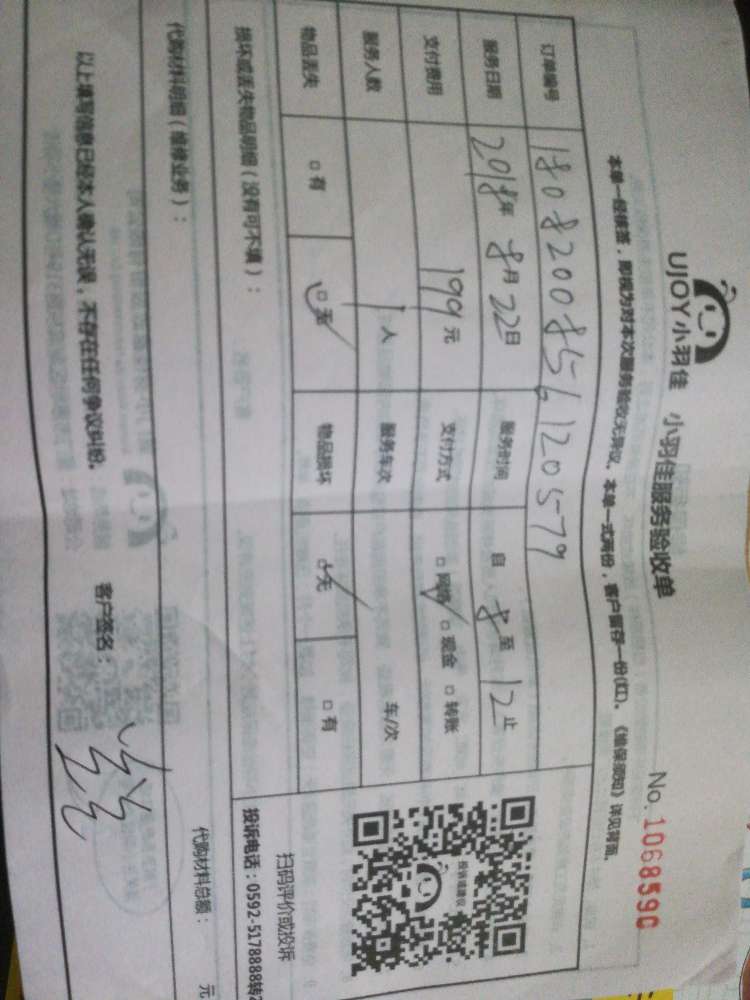 UJOY小羽佳 小羽佳服务验收单 No. 1068590
本单一经接签，即视为对本次服务验收无异议。本单一式两份，客户留存一份(红)。《维保须知》详见背面。
订单编号 1808200856120579
服务日期 2018年 8月 22日 服务时间 自 8 至 12 止
支付费用 199 元 支付方式 □ 网络 □ 现金 □ 转账
服务人数 1 人 服务车次 车/次
物品丢失 □ 有 □ 无 物品损坏 □ 无 □ 有
投诉或建议
扫码评价或投诉
投诉电话：0592-5178888转2
损坏或丢失物品明细（没有可不填）：
代购材料明细（维修业务）： 代购材料总额： 元
以上填写信息已经本人确认无误，不存在任何争议纠纷。 客户签名：